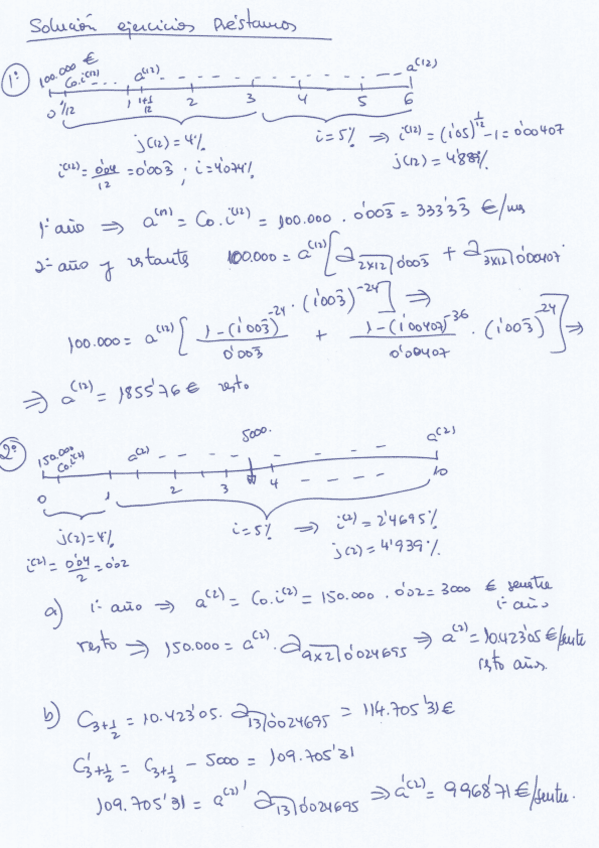 Solución ejercicios Préstamos
1º
100.000 €
Co.i⁽¹²⁾ ... a⁽¹²⁾ - - - - - - - - a⁽¹²⁾
0 1/12 1 1+1/12 2 3 4 5 6
j(12) = 4% i = 5% ⇒ i⁽¹²⁾ = (1'05)^(1/12) - 1 = 0'00407
i⁽¹²⁾ = 0'04/12 = 0'003̄ ; i = 4'074% j(12) = 4'88%
1º año ⇒ a⁽¹²⁾ = Co.i⁽¹²⁾ = 100.000 · 0'003̄ = 333'33̄ €/mes
2º año y restante 100.000 = a⁽¹²⁾ [a 2x12⌉0'003̄ + a 3x12⌉0'00407 · (1'003̄)⁻²⁴] ⇒
100.000 = a⁽¹²⁾ [(1-(1'003̄)⁻²⁴)/0'003̄ + (1-(1'00407)⁻³⁶)/0'00407 · (1'003̄)⁻²⁴] ⇒
⇒ a⁽¹²⁾ = 1855'76 € resto
2º
150.000
Co.i⁽²⁾ a⁽²⁾ - - - 5000. - - - a⁽²⁾
0 1 2 3 4 - - - - 10
j(2) = 4% i = 5% ⇒ i⁽²⁾ = 2'4695%
i⁽²⁾ = 0'04/2 = 0'02 j(2) = 4'939%
a) 1º año ⇒ a⁽²⁾ = Co.i⁽²⁾ = 150.000 · 0'02 = 3000 € semestre 1º año
resto ⇒ 150.000 = a⁽²⁾ · a 9x2⌉0'024695 ⇒ a⁽²⁾ = 10.423'05 €/semestre
resto años.
b) C 3+1/2 = 10.423'05 · a 13⌉0'024695 = 114.705'31 €
C' 3+1/2 = C 3+1/2 - 5000 = 109.705'31
109.705'31 = a⁽²⁾' a 13⌉0'024695 ⇒ a'⁽²⁾ = 9968'71 €/semestre.